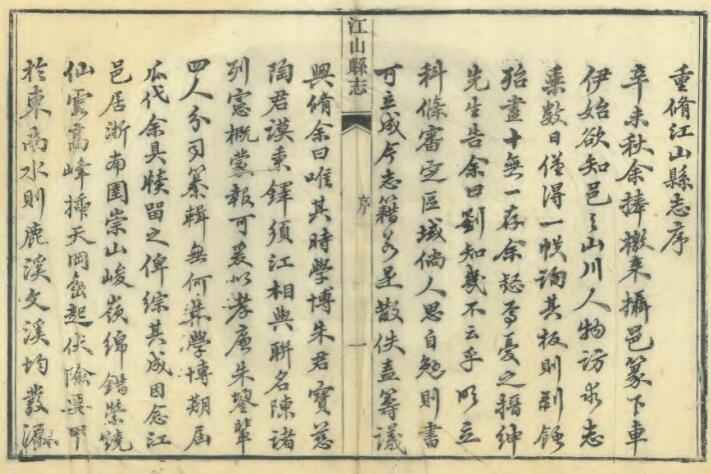 重脩江山縣志序
辛未秋余捧檄來攝邑篆下車
伊始欲知邑之山川人物訪求志
乘數日僅得一帙詢其板則剥蝕
殆盡十無一存余慭焉憂之搢紳
先生告余曰劉知幾不云乎明立
科條審定區域倘人思自勉則書
可立成今志籍若是散佚盍籌議
江山縣志
序
一
興脩余曰唯其時學博朱君寶慈
陶君謨秉鐸須江相與聯名陳諸
列憲概蒙報可爰以孝廉朱鑾輩
四人分司纂輯無何朱學博期届
瓜代余具牘留之俾綜其成因念江
邑居浙南圉崇山峻嶺綿錯縈繞
仙雲高峰揷天岡巒起伏險要甲
於東南水則鹿溪文溪均發源